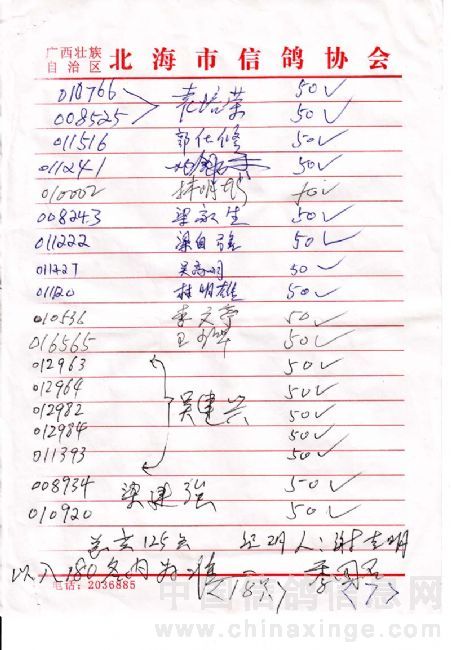 广西壮族
自治区 北海市信鸽协会
010766 袁培荣 50✓
008525 50✓
011516 郭仕修 50✓
011241 50✓
010002 林明 50✓
008243 梁敏生 50✓
011222 梁自强 50✓
011227 吴 50✓
01120 林明雄 50✓
010536 李文 50✓
016565 50✓
012963 50✓
012964 50✓
012982 吴建兴 50✓
012984 50✓
011393 50✓
008934 梁建强 50✓
010920 50✓
125 人:谢志明
以入180名内为准 李
电话:2036885 <18> <7>
中国信鸽信息网
www.chinaxinge.com